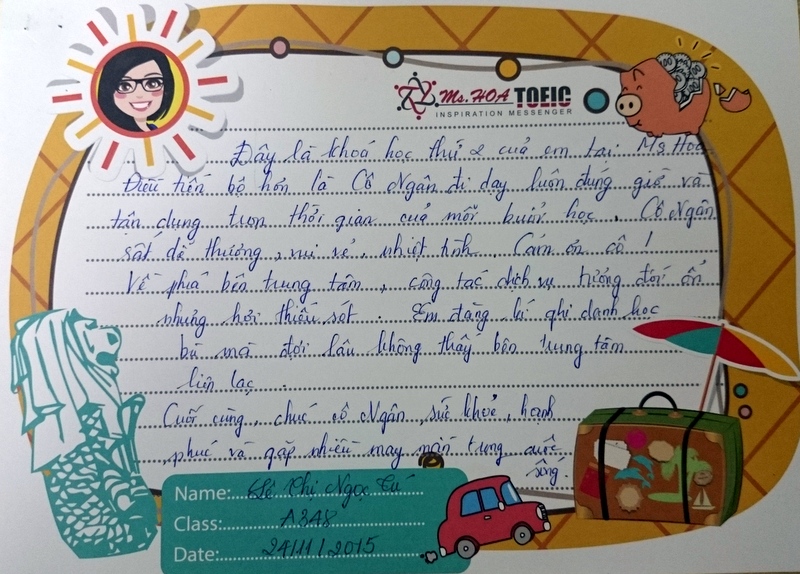 Ms. HOA TOEIC
INSPIRATION MESSENGER
Đây là khoá học thứ 2 của em tại Ms Hoa
Điều tiến bộ hơn là Cô Ngân đi dạy luôn đúng giờ và
tận dụng trọn thời gian của mỗi buổi học. Cô Ngân
rất dễ thương, vui vẻ, nhiệt tình. Cám ơn cô!
Về phía bên trung tâm, công tác dịch vụ tương đối ổn
nhưng hơi thiếu sót. Em đăng kí ghi danh học
bù mà đợi lâu không thấy bên trung tâm
liên lạc.
Cuối cùng, chúc cô Ngân, sức khoẻ, hạnh
phúc và gặp nhiều may mắn trong cuộc
sống
Name: Lê Thị Ngọc Tú
Class: A348
Date: 24/11/2015